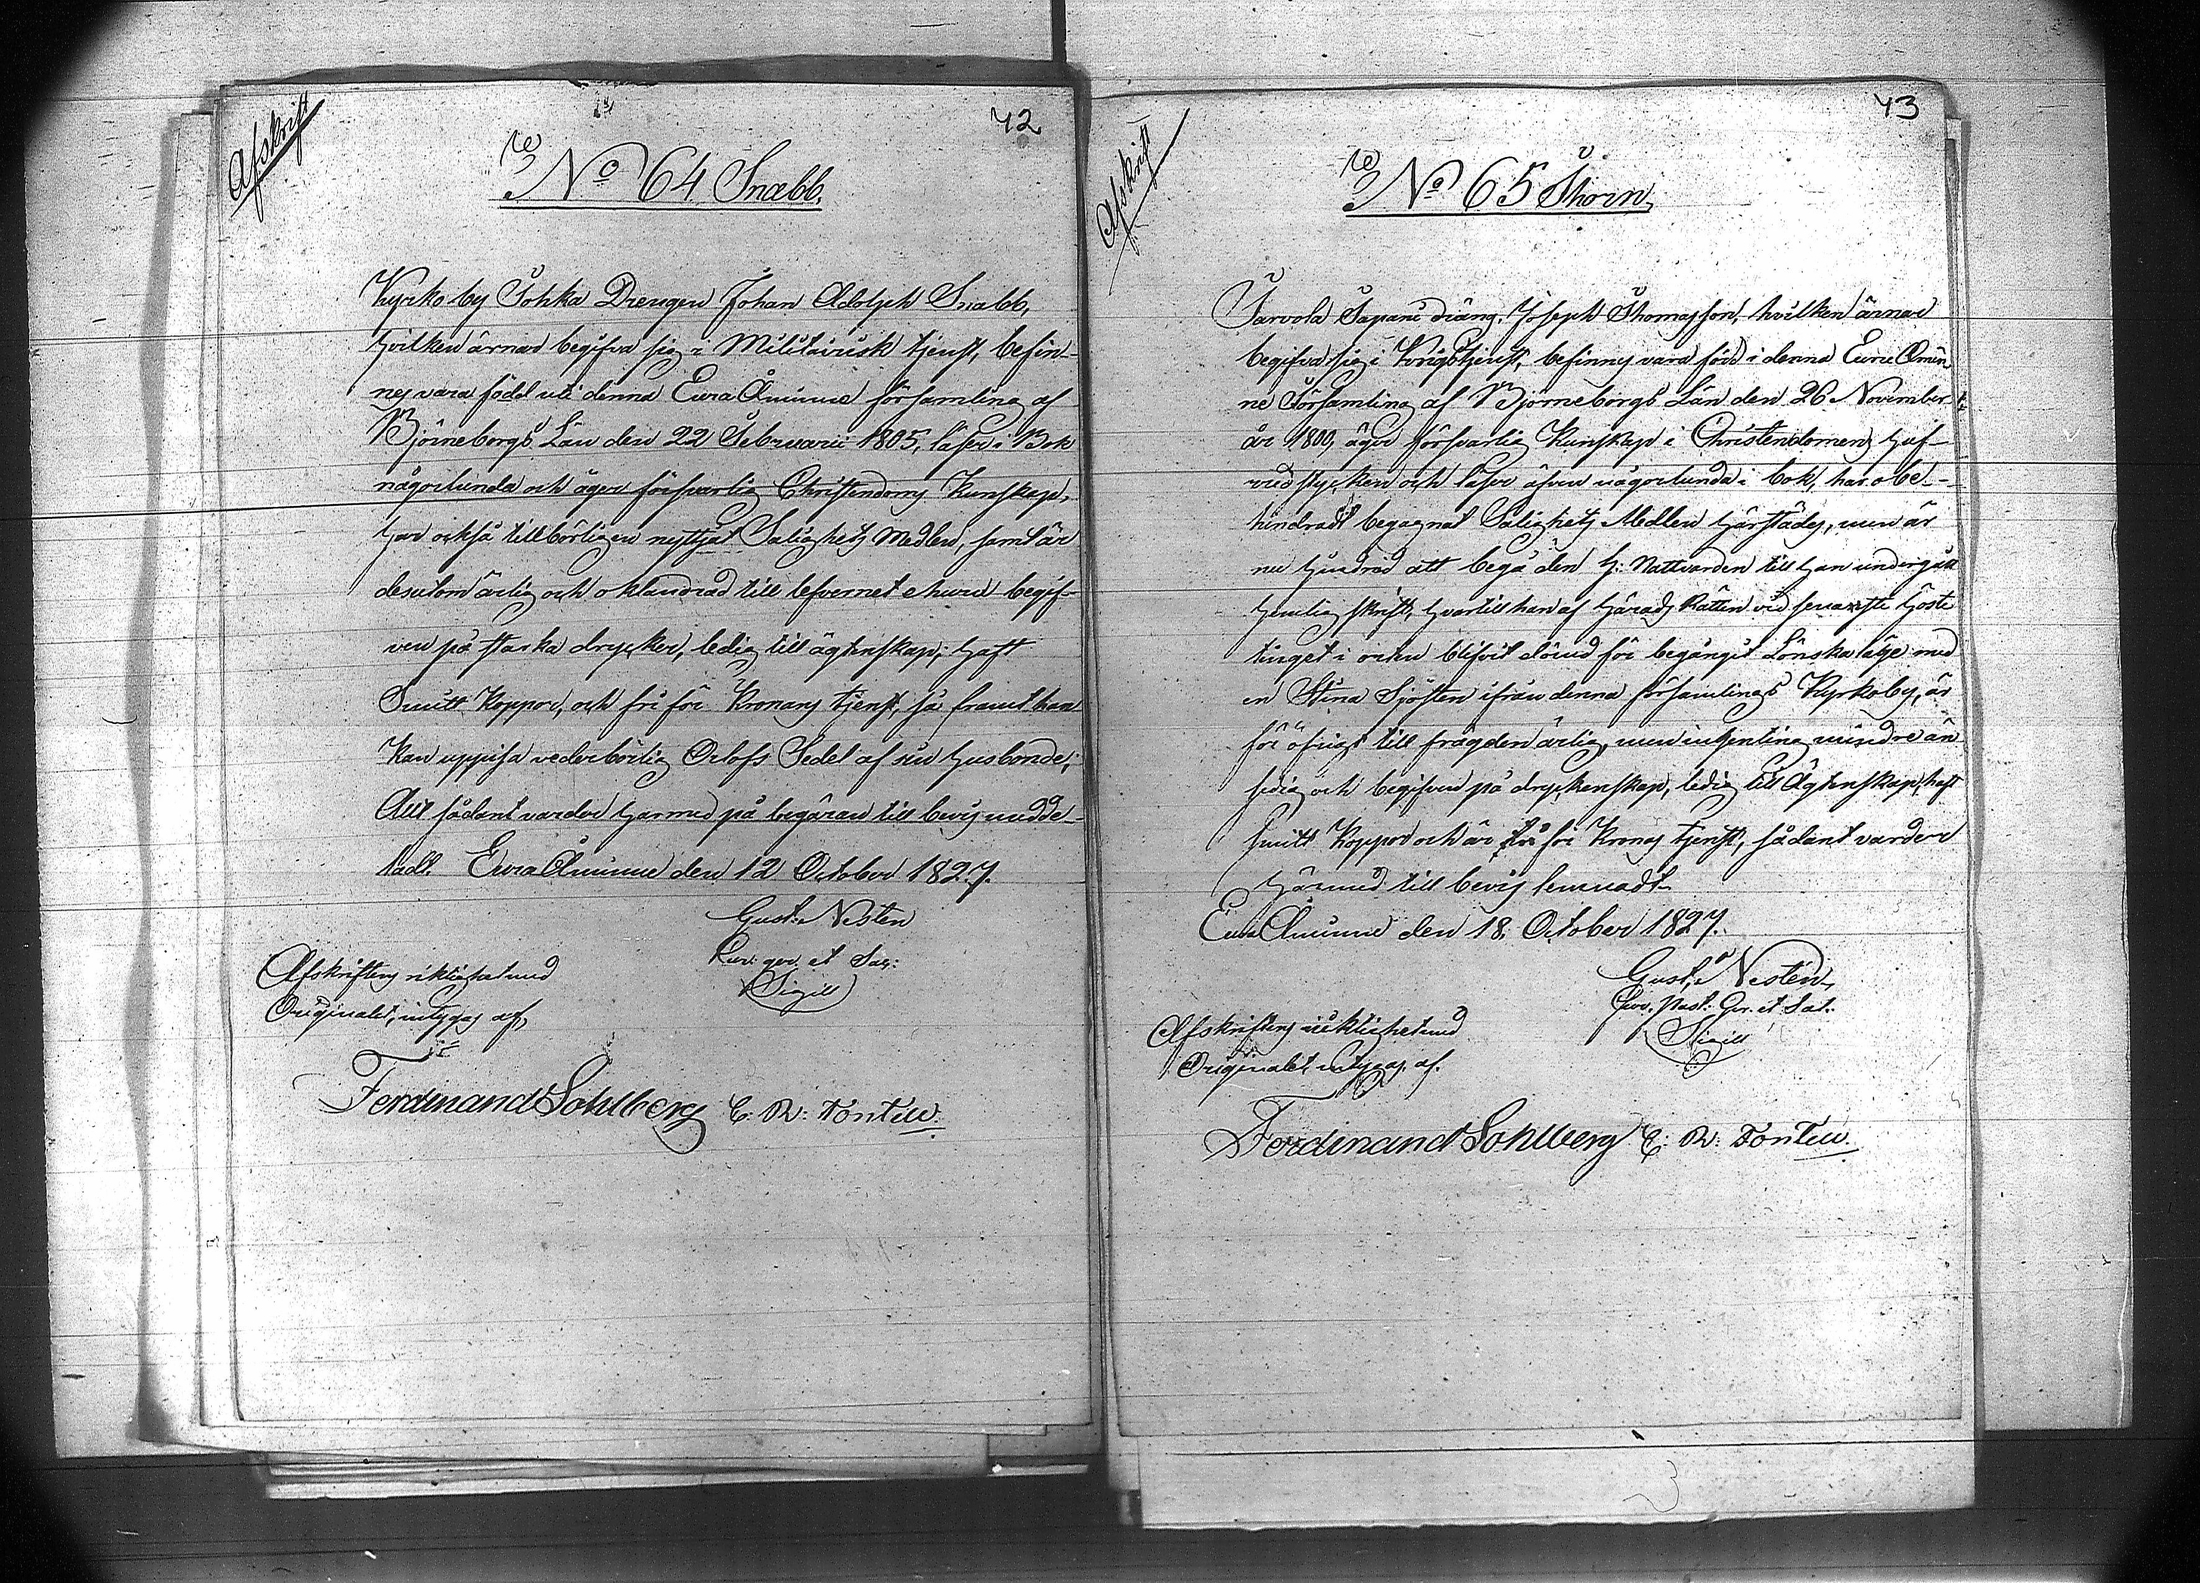 Afskrift
42
No 64 Snabb.
Kyrko by Sohka Drengen Johan Adolph Snabb,
hvilken ärnar begifva sig i Militairisk tjenst, befin-
nes vara född uti denna Eura Åminne församling af
Björneborgs Län den 22 Februarii 1805, läser i Bok
någorlunda och äger försvarlig Christendoms Kunskap,
har också tillbörligen nyttjat Salighets Medlen, samt är
desutom ärlig och oklandrad till lefvernet ehuru begif-
ven på starka drycker, ledig till ägtenskap; haft
Smitt Koppor, och fri för Kronans tjenst, så framt han
kan uppvisa vederbörlig Orlofs Sedel af sin husbonde;
Allt sådant varder harmed på begäran till bevis medde-
ladt. Eura Åminne den 12 October 1827.
Gust: Nestén
et Sac:
Sigill
Afskriftens riktighet med
Originalet, intygas af,
Ferdinand Sohlberg C. R:
43
Afskrift
No 65 Thorn.
Sarvola Sapani dräng, Joseph Thomasson, hvilken ärnar
begifva sig i Krigstjenst, befinnes vara född i denna Eura Åmin
ne Församling af Björneborgs Län den 26 November
år 1800, äger försvarlig Kunskap i Christendomens huf-
vudstycken och läser äfven någorlunda i bok, har obe-
hindradt begagnat Salighets Medlen härstädes, men är
nu hindrad att begå den H: Nattvarden till han undergått
hemlig skrift, hvartill han af Härads Rätten vid senaste höste
tinget i orten blifvit dömd för begånget Lönskaläge med
en Stina Sjösten ifrån denna församlings Kyrkoby, är
för öfrigt till frägden ärlig, men ingenting mindre än
sedig och begifven på dryckenskap, ledig till Ägtenskap, haft
smitt Koppor och är fri för Krono tjenst, sådant varder
härmed till bevis lemnadt.
Eura Åminne den 18. October 1827.
Gust: Nestén,
Past. et Sac.
Sigill
Afskriftens riktighet med
Originalet intygas af.
Ferdinand Sohlberg C: R: